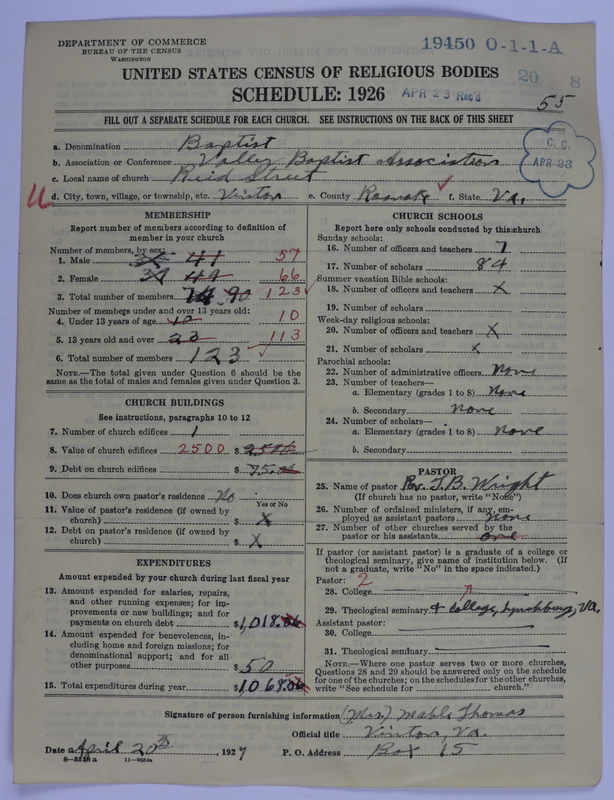 DEPARTMENT OF COMMERCE
BUREAU OF THE CENSUS
WASHINGTON
19450 0-1-1-A
UNITED STATES CENSUS OF RELIGIOUS BODIES
20 8
SCHEDULE: 1926
APR 23 Rec'd
55
FILL OUT A SEPARATE SCHEDULE FOR EACH CHURCH. SEE INSTRUCTIONS ON THE BACK OF THIS SHEET
C. C.
APR 23
a. Denomination Baptist
b. Association or Conference Valley Baptist Association
c. Local name of church Reid Street
d. City, town, village, or township, etc. Vinton e. County Roanoke f. State Va.
MEMBERSHIP
Report number of members according to definition of
member in your church
Number of members, by sex:
1. Male 41 57
2. Female 49 66
3. Total number of members 90 123
Number of members under and over 13 years old:
4. Under 13 years of age 10 10
5. 13 years old and over 23 113
6. Total number of members 123
NOTE.—The total given under Question 6 should be the
same as the total of males and females given under Question 3.
CHURCH BUILDINGS
See instructions, paragraphs 10 to 12
7. Number of church edifices 1
8. Value of church edifices 2500 $ 2500
9. Debt on church edifices $ 75.00
10. Does church own pastor's residence No
Yes or No
11. Value of pastor's residence (if owned by
church) $ X
12. Debt on pastor's residence (if owned by
church) $ X
EXPENDITURES
Amount expended by your church during last fiscal year
13. Amount expended for salaries, repairs,
and other running expenses; for im-
provements or new buildings; and for
payments on church debt $1,018.00
14. Amount expended for benevolences, in-
cluding home and foreign missions; for
denominational support; and for all
other purposes $50
15. Total expenditures during year $1068.00
CHURCH SCHOOLS
Report here only schools conducted by this church
Sunday schools:
16. Number of officers and teachers 7
17. Number of scholars 84
Summer vacation Bible schools:
18. Number of officers and teachers X
19. Number of scholars
Week-day religious schools:
20. Number of officers and teachers X
21. Number of scholars X
Parochial schools:
22. Number of administrative officers None
23. Number of teachers—
a. Elementary (grades 1 to 8) None
b. Secondary None
24. Number of scholars—
a. Elementary (grades 1 to 8) None
b. Secondary
PASTOR
25. Name of pastor Rev. J. B. Wright
(If church has no pastor, write "None")
26. Number of ordained ministers, if any, em-
ployed as assistant pastors None
27. Number of other churches served by the
pastor or his assistants one
If pastor (or assistant pastor) is a graduate of a college or
theological seminary, give name of institution below. (If
not a graduate, write "No" in the space indicated.)
Pastor: 2
28. College
29. Theological seminary & College, Lynchburg, Va.
Assistant pastor:
30. College
31. Theological seminary
NOTE.—Where one pastor serves two or more churches,
Questions 28 and 29 should be answered only on the schedule
for one of the churches; on the schedules for the other churches,
write "See schedule for church."
Signature of person furnishing information (Mrs.) Mable Thomas
Official title Vinton, Va.
Date April 20th, 1927 P. O. Address Box 15
8—5518 a 11—9054a